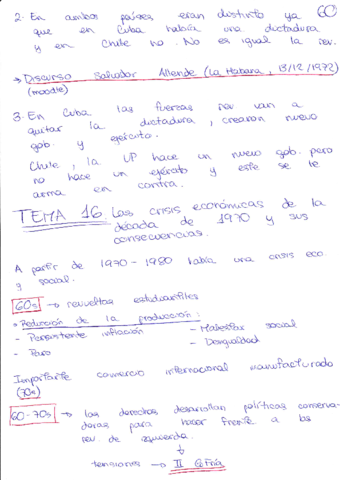 2. En ambos países eran distinto ya
que en Cuba había una dictadura
y en Chile no. No es igual la rev.
→ Discurso Salvador Allende (La Habana, 13/12/1972)
(moodle)
3. En Cuba las fuerzas rev van a
quitar la dictadura, crearon nuevo
gob. y ejército.
Chile, la UP hace un nuevo gob. pero
no hace un ejército y este se le
arma en contra.
TEMA 16. Las crisis económicas de la
década de 1970 y sus
consecuencias.
A partir de 1970 - 1980 había una crisis eco
y social.
60s → revueltas estudiantiles
Reducción de la producción:
- Persistente inflación - Malestar social
- Paro - Desigualdad
Importante comercio internacional manufacturado
(70s)
60-70s → las derechas desarrollan políticas conserva-
doras para hacer frente a las
rev. de izquierda.
↓
tensiones → II G.Fría